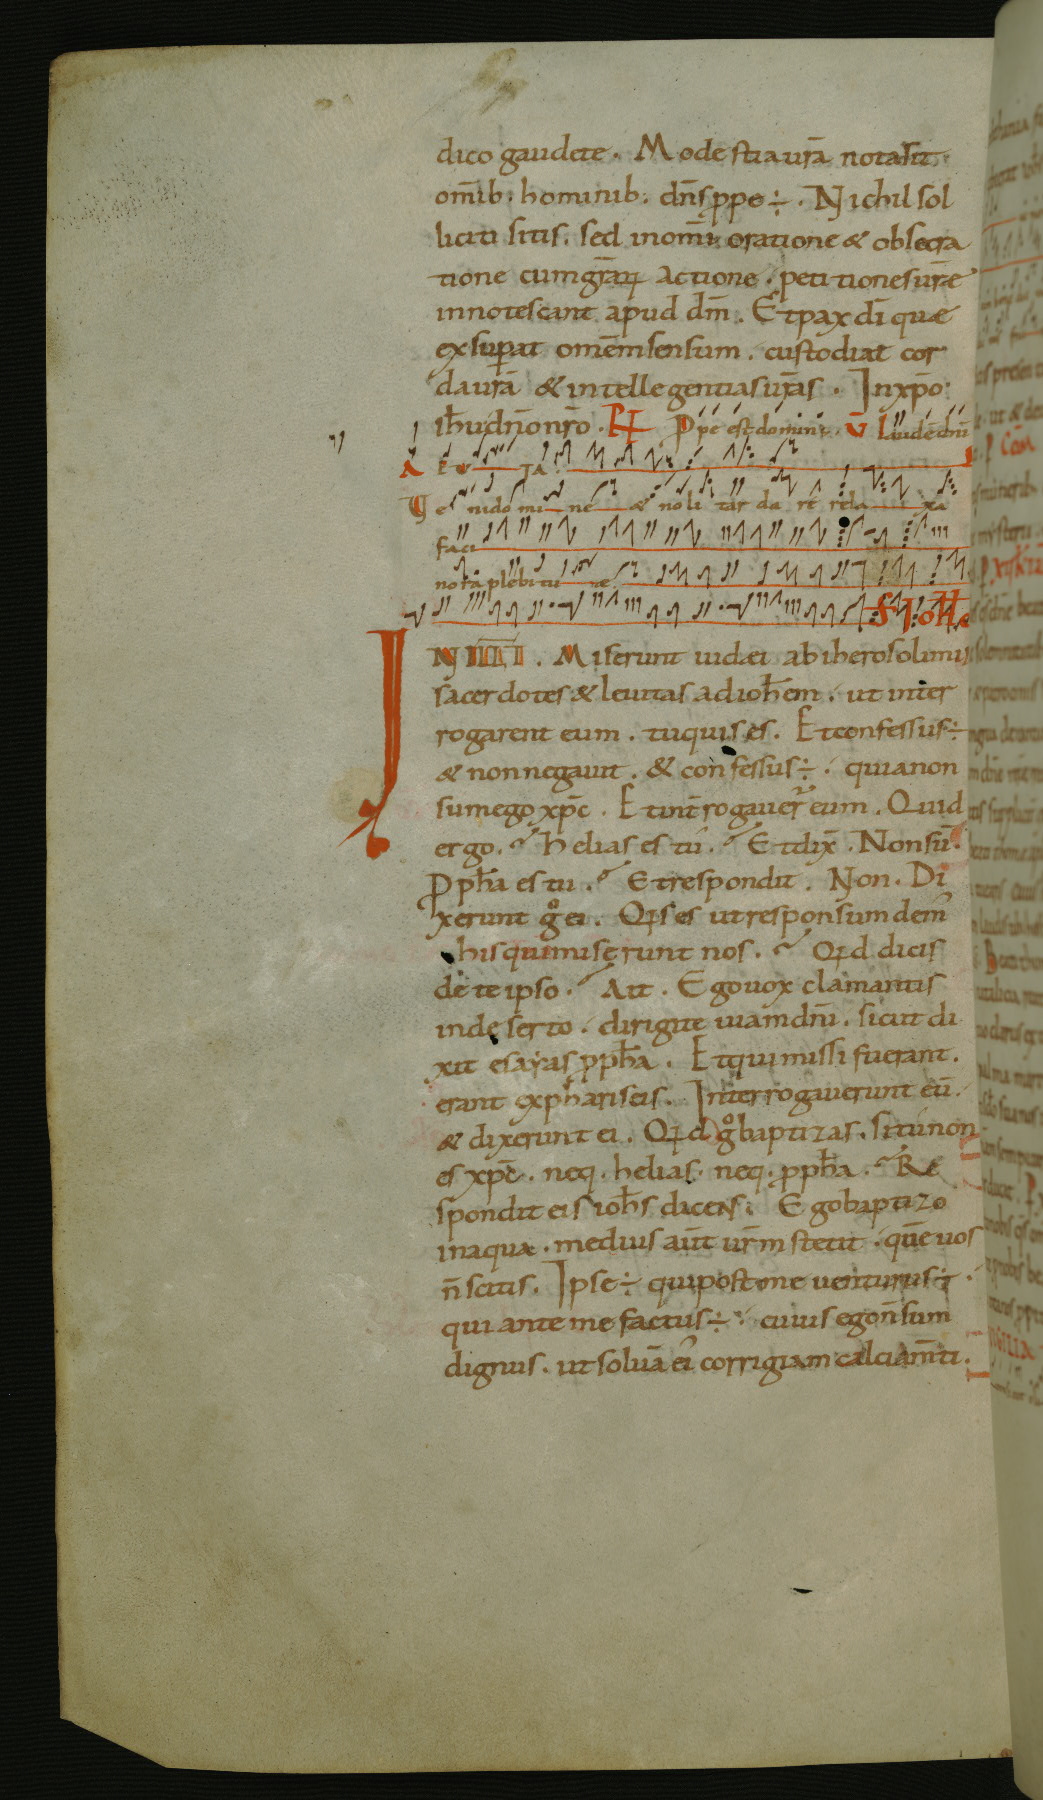 dico gaudete. Modestia ur̄a nota sit
om̄ib. hominib. dn̄s ꝓpe ÷. Nichil sol
liciti sitis. sed in om̄i oratione & obsecra
tione cum gr̄aꝝ actione. petitiones ur̄e
innotescant apud dm̄. Et pax dī quæ
exsuperat om̄em sensum. custodiat cor
da ur̄a & intellegentias ur̄as. In xp̄o
ih̄u dn̄o nr̄o. R Ppe est dominus. V̄ Laudē dn̄i
A E U IA
Ueni domine & noli tardare relaxa
faci
nora plebi tuæ
S IOH̄
IN ILL̄ T. Miserunt iudei ab iherosolimis
sacerdotes & leuitas ad ioh̄em. ut inter
rogarent eum. tu quis es. Et confessus ÷
& non negauit. & confessus ÷. quia non
sum ego xp̄c. Et int̄rogauer̄ eum. Quid
ergo. helias es tu. Et dix̄. Non sū.
Ppha es tu. Et respondit. Non. Di
xerunt gͦ ei. Qis es ut responsum dem̄
his qui miserunt nos. Qid dicis
de te ipso. Ait. Ego uox clamantis
in deserto. dirigite uiam dn̄i. sicut di
xit esayas ꝓph̄a. Et qui missi fuerant.
erant ex phariseis. Interrogauerunt eū.
& dixerunt ei. Qid gͦ baptizas. si tu non
es xp̄c. neq. helias. neq. ꝓph̄a. Re
spondit eis ioh̄s dicens. Ego baptizo
in aqua. medius aūt ur̄m stetit. quē uos
n̄ scitis. Ipse ÷ qui post me uenturus ÷.
qui ante me factus ÷. cuius ego n̄ sum
dignus. ut soluā ei corrigiam calciam̄ti.